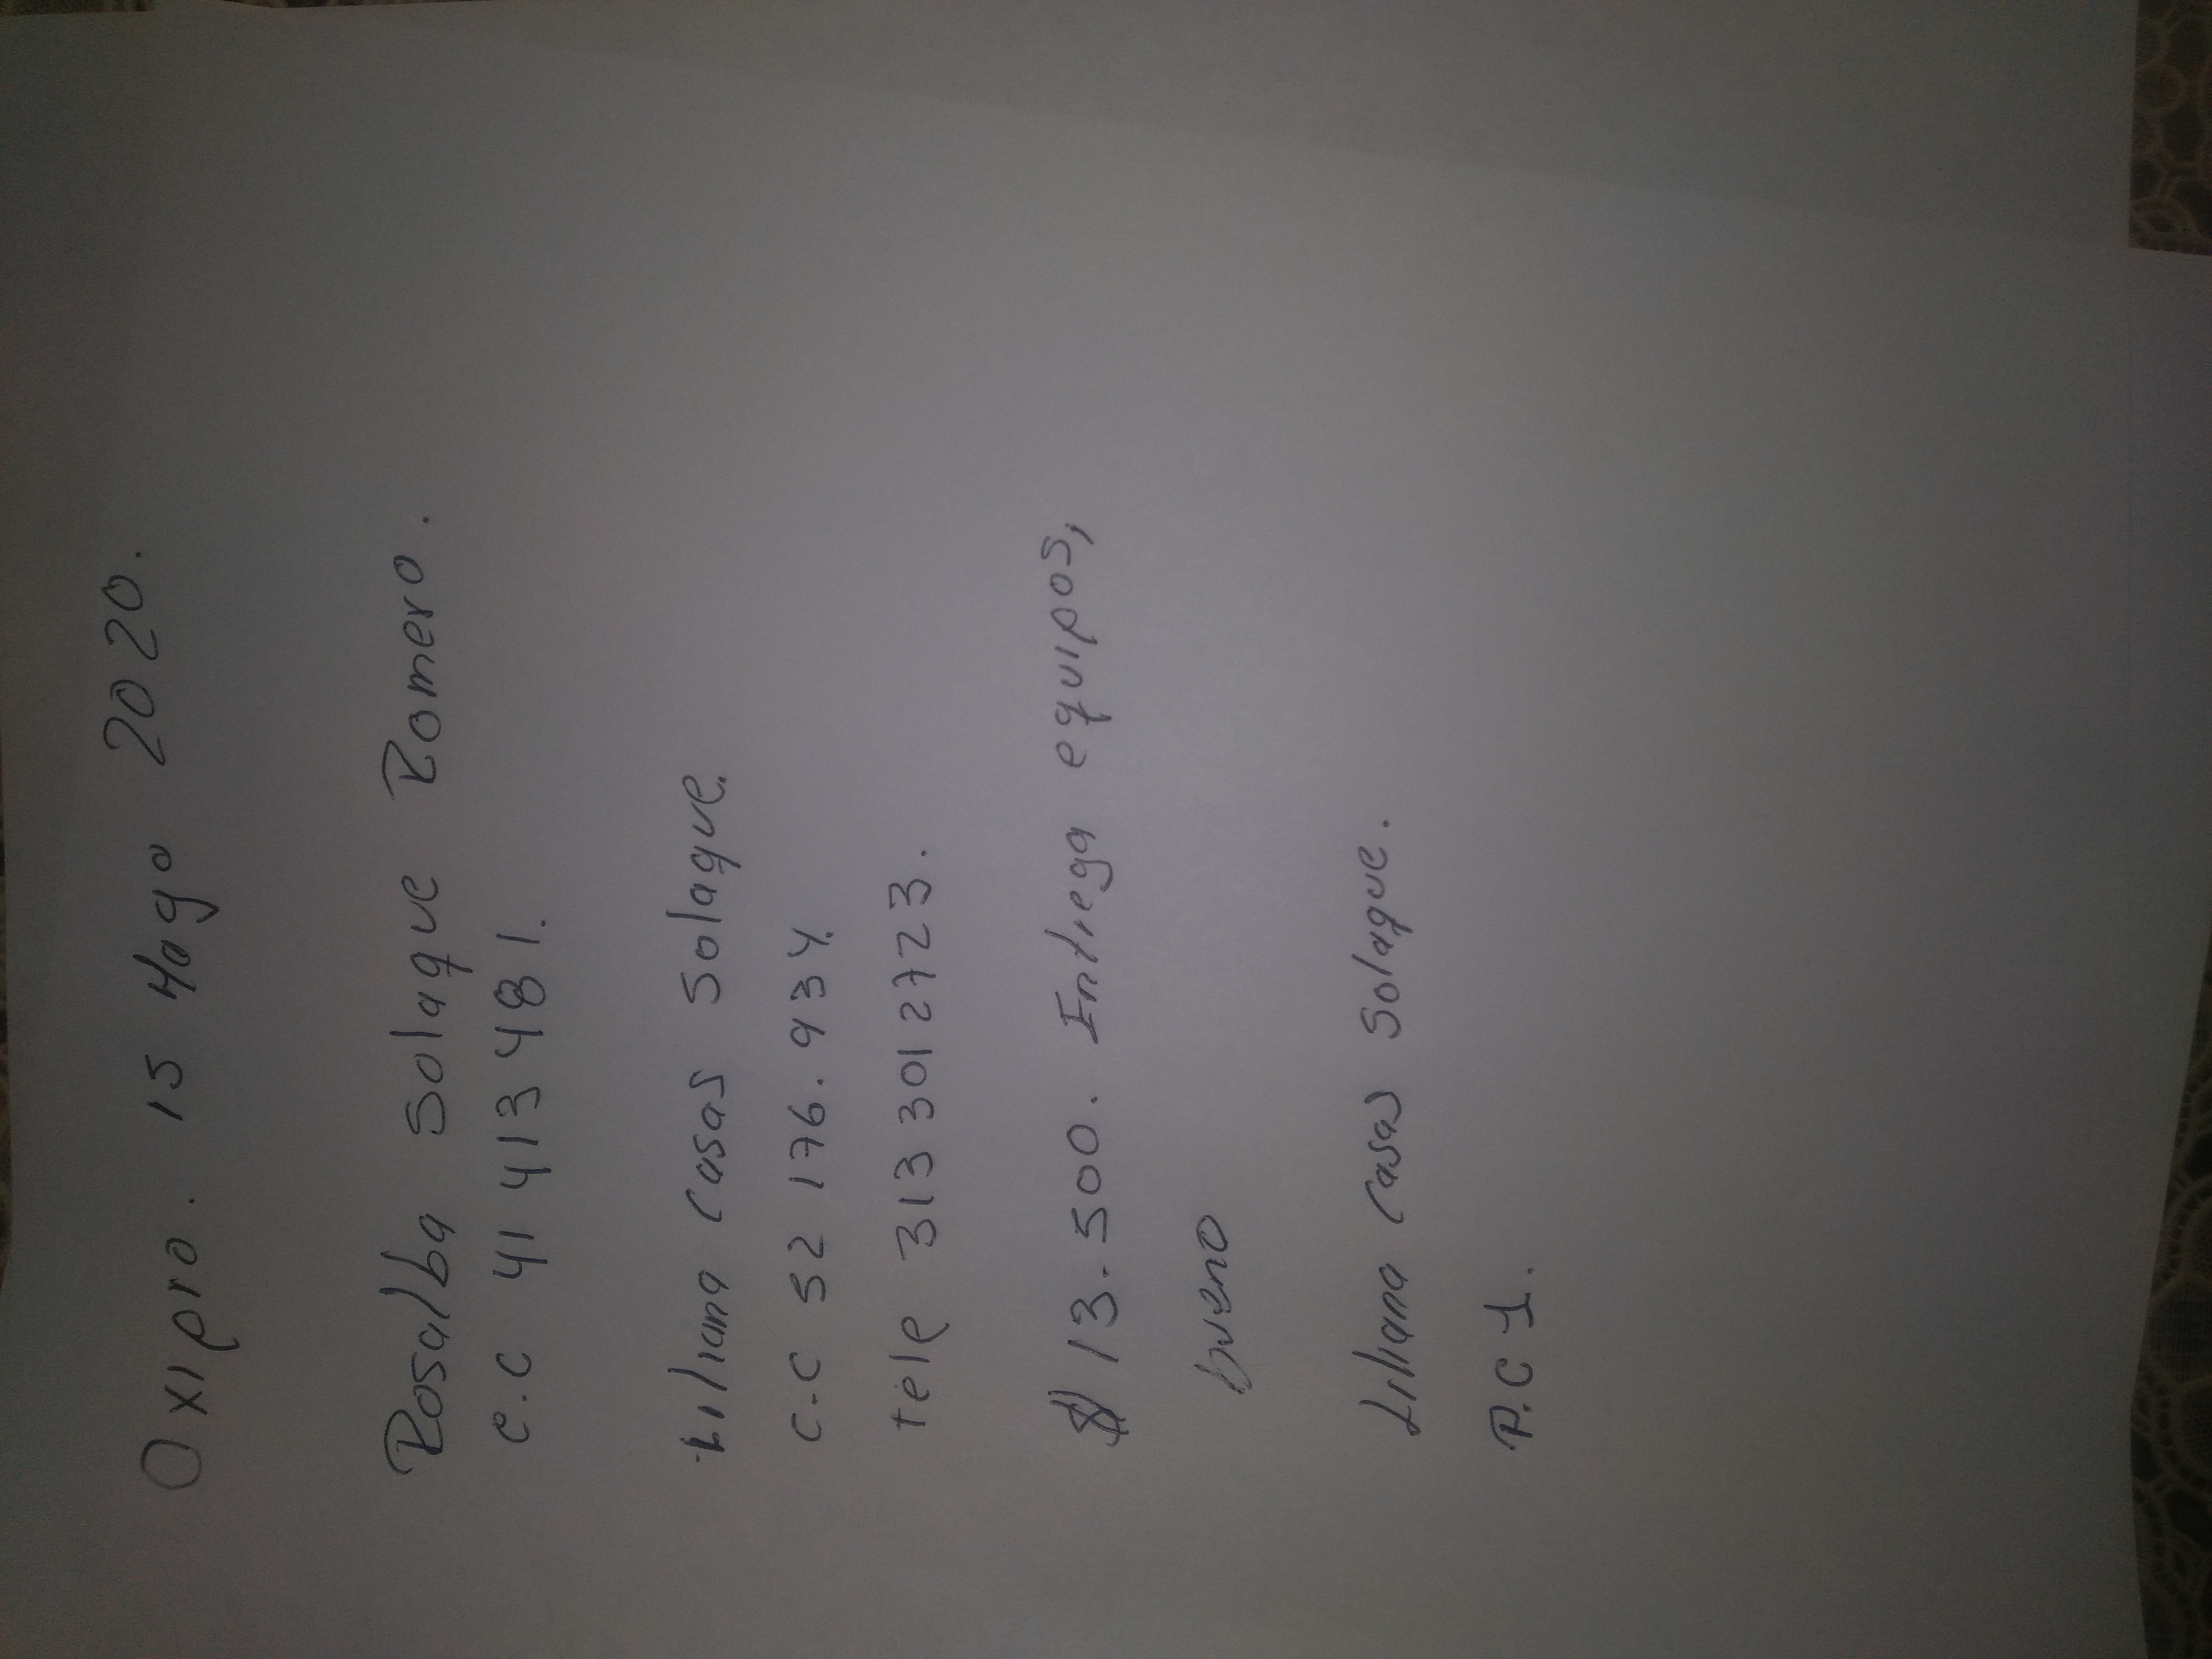 Oxipro. 15 Mayo 2020.
Rosalba Solaque Romero.
c.c 41 413 481.
Liliana Casas Solaque.
C.C 52 176.934.
tele 313 3012723.
$ 13.500. Entrega equipos,
bueno
Liliana Casas Solaque.
P.C 1.